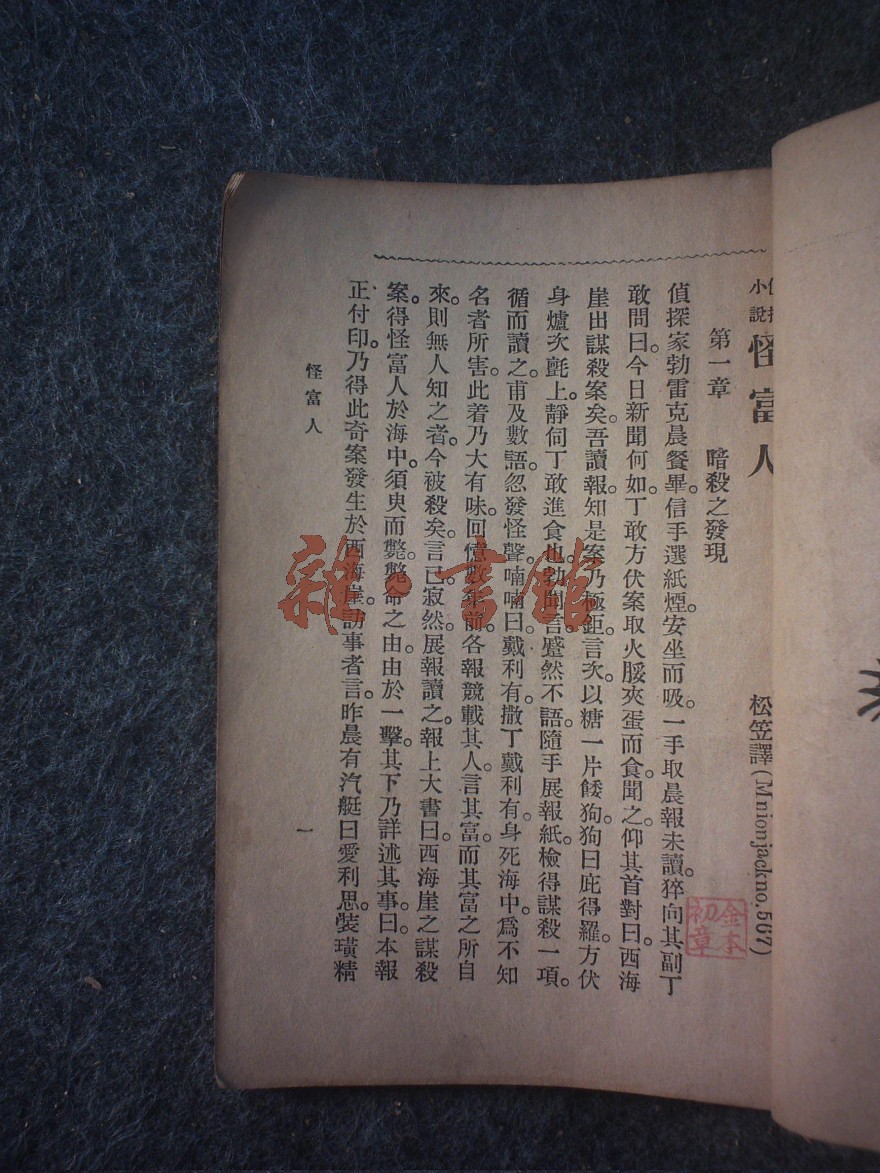 小說
怪富人
松笠譯(Mnionjackno.567)
第一章　暗殺之發現
偵探家勃雷克晨餐畢。信手選紙煙。安坐而吸。一手取晨報未讀。猝向其副丁
敢問曰。今日新聞何如。丁敢方伏案取火腿夾蛋而食。聞之。仰其首對曰。西海
崖出謀殺案矣。吾讀報知是案乃極鉅。言次。以糖一片餧狗。狗曰庇得羅。方伏
身爐次氈上。靜伺丁敢進食也。言。蹙然不語。隨手展報紙。檢得謀殺一項。
循而讀之。甫及數語。忽發怪聲。喃喃曰。戴利有。撒丁戴利有。身死海中。爲不知
名者所害。此着乃大有味。回憶數年前。各報競載其人。言其富。而其富之所自
來。則無人知之者。今被殺矣。言已寂然。展報讀之。報上大書曰。西海崖之謀殺
案。得怪富人於海中。須臾而斃。斃命之由。由於一擊。其下乃詳述其事。曰。本報
正付印。乃得此奇案發生於西海崖。訪事者言。昨晨有汽艇曰愛利思。裝璜精
怪富人
一
雜·書館
金本
初章